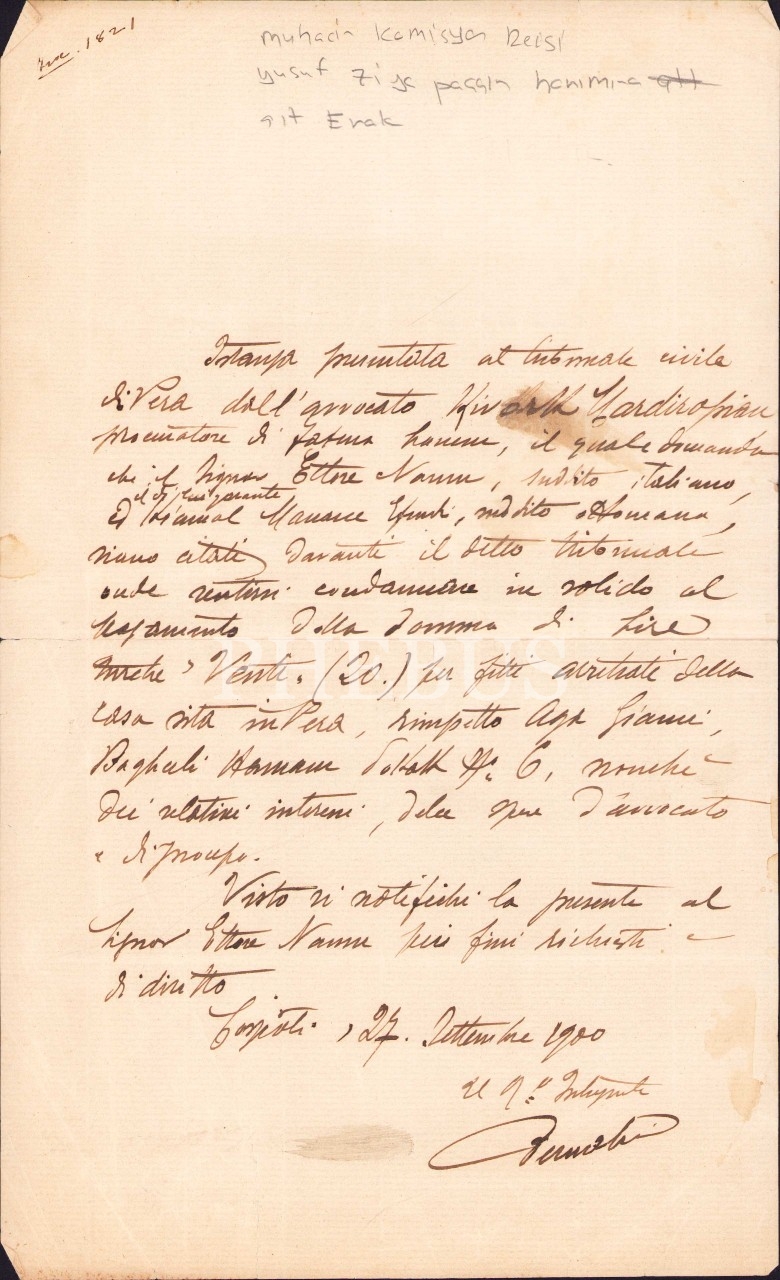 1821
muhacir Komisyon Reisi
yusuf Ziya paşşın hanımına
ait Evrak
Istanza presentata al tribunale civile
di Pera dall'avvocato Kivork Mardirossian
procuratore di Fatma hanem, il quale domanda
che il Signor Ettore Nanni, suddito italiano,
il di lui garante
Ed Manasse Efendi, suddito ottomano,
siano citati davanti il detto tribunale
onde sentirsi condannare in solido al
pagamento della somma di Lire
turche Venti (20.) per fitti arretrati della
casa sita in Pera, rimpetto Aga Giami,
Hamam Sokak No. 6, nonché
dei relativi interessi, delle spese d'avvocato
e di processo.
Visto si notifichi la presente al
Signor Ettore Nanni per i fini richiesti e
di diritto
Cospoli, 27. Settembre 1900
Il Interprete